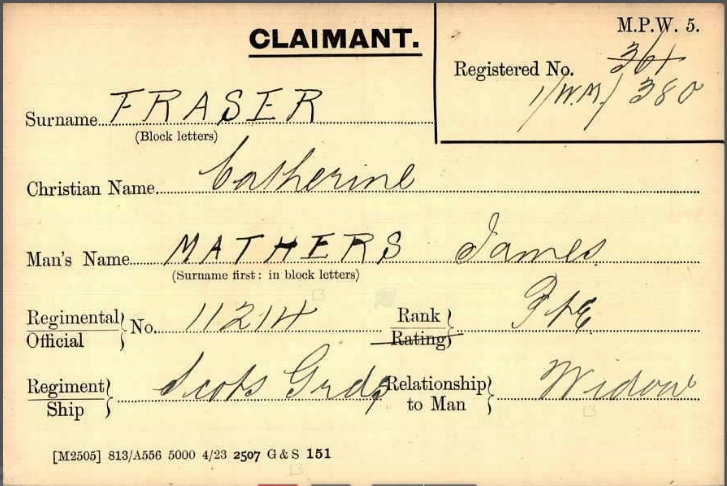 CLAIMANT.
M.P.W. 5.
Registered No. 361
1/W.M/380
Surname FRASER
(Block letters)
Christian Name Catherine
Man's Name MATHERS James
(Surname first: in block letters)
Regimental
Official } No. 11214
Rank
Rating } Pte
Regiment
Ship } Scots Grds
Relationship
to Man } Widow
[M2505] 813/A556 5000 4/23 2507 G & S 151